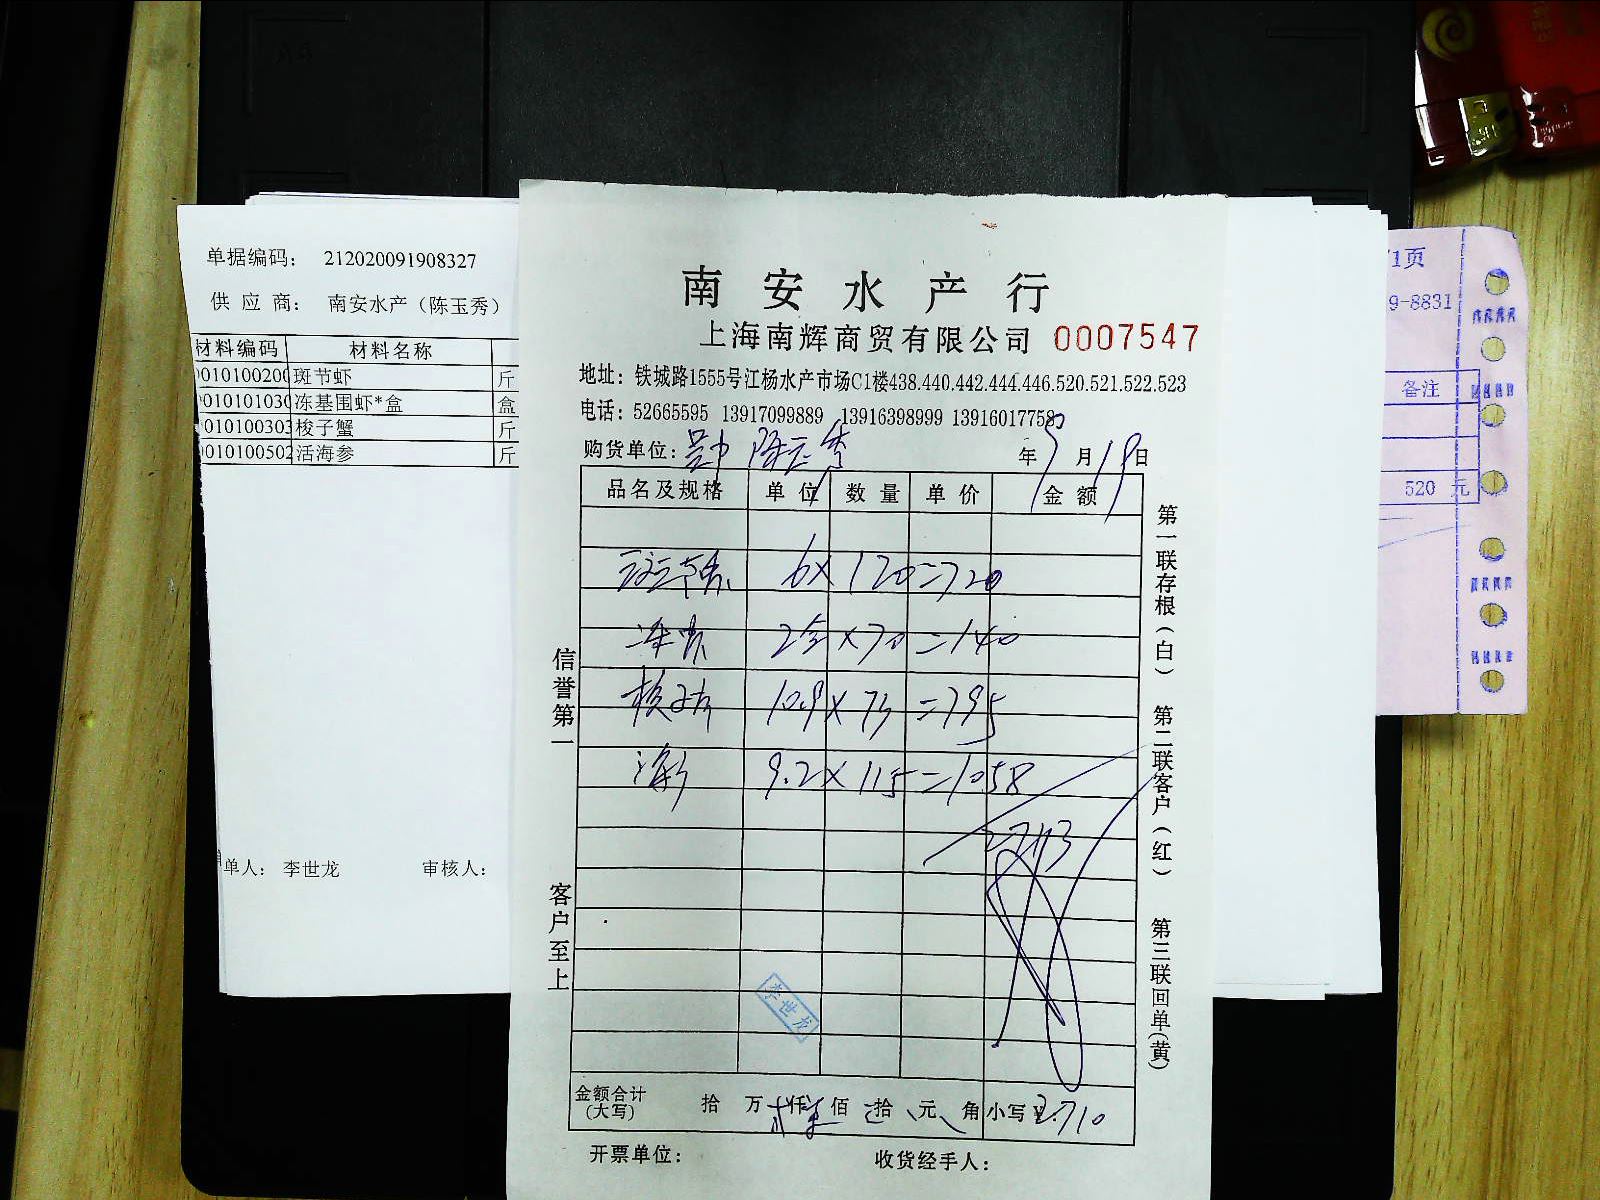 单据编码： 212020091908327
供 应 商： 南安水产（陈玉秀）
材料编码 材料名称
010100200 斑节虾 斤
010101030 冻基围虾*盒 盒
010100303 梭子蟹 斤
010100502 活海参 斤
单人： 李世龙 审核人：
南安水产行
上海南辉商贸有限公司 0007547
地址：铁城路1555号江杨水产市场C1楼438.440.442.444.446.520.521.522.523
电话：52665595 13917099889 13916398999 13916017758
购货单位： 陈玉秀 年 9 月 19 日
品名及规格 单位 数量 单价 金额
6 x 120 = 720
2盒 x 70 = 140
10.9 x 73 = 795
海参 9.2 x 115 = 1058
2713
李世龙
金额合计（大写） 拾 万 仟 佰 拾 元 角 小写¥ 2710
开票单位： 收货经手人：
信誉第一
客户至上
第一联存根（白） 第二联客户（红） 第三联回单（黄）
1页
9-8831
备注
520 元